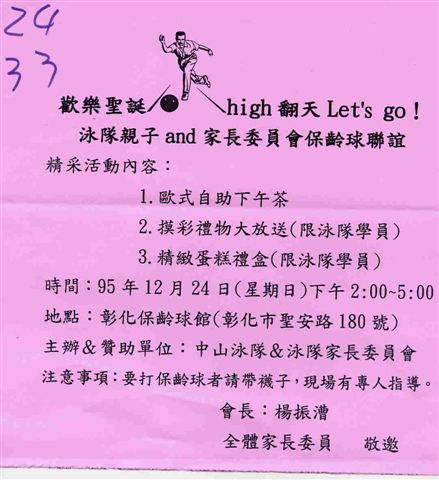 24
33
歡樂聖誕 high 翻天 Let's go！
泳隊親子 and 家長委員會保齡球聯誼
精采活動內容：
1.歐式自助下午茶
2.摸彩禮物大放送(限泳隊學員)
3.精緻蛋糕禮盒(限泳隊學員)
時間：95 年 12 月 24 日(星期日)下午 2:00~5:00
地點：彰化保齡球館(彰化市聖安路 180 號)
主辦＆贊助單位：中山泳隊＆泳隊家長委員會
注意事項：要打保齡球者請帶襪子，現場有專人指導。
會長：楊振漕
全體家長委員 敬邀